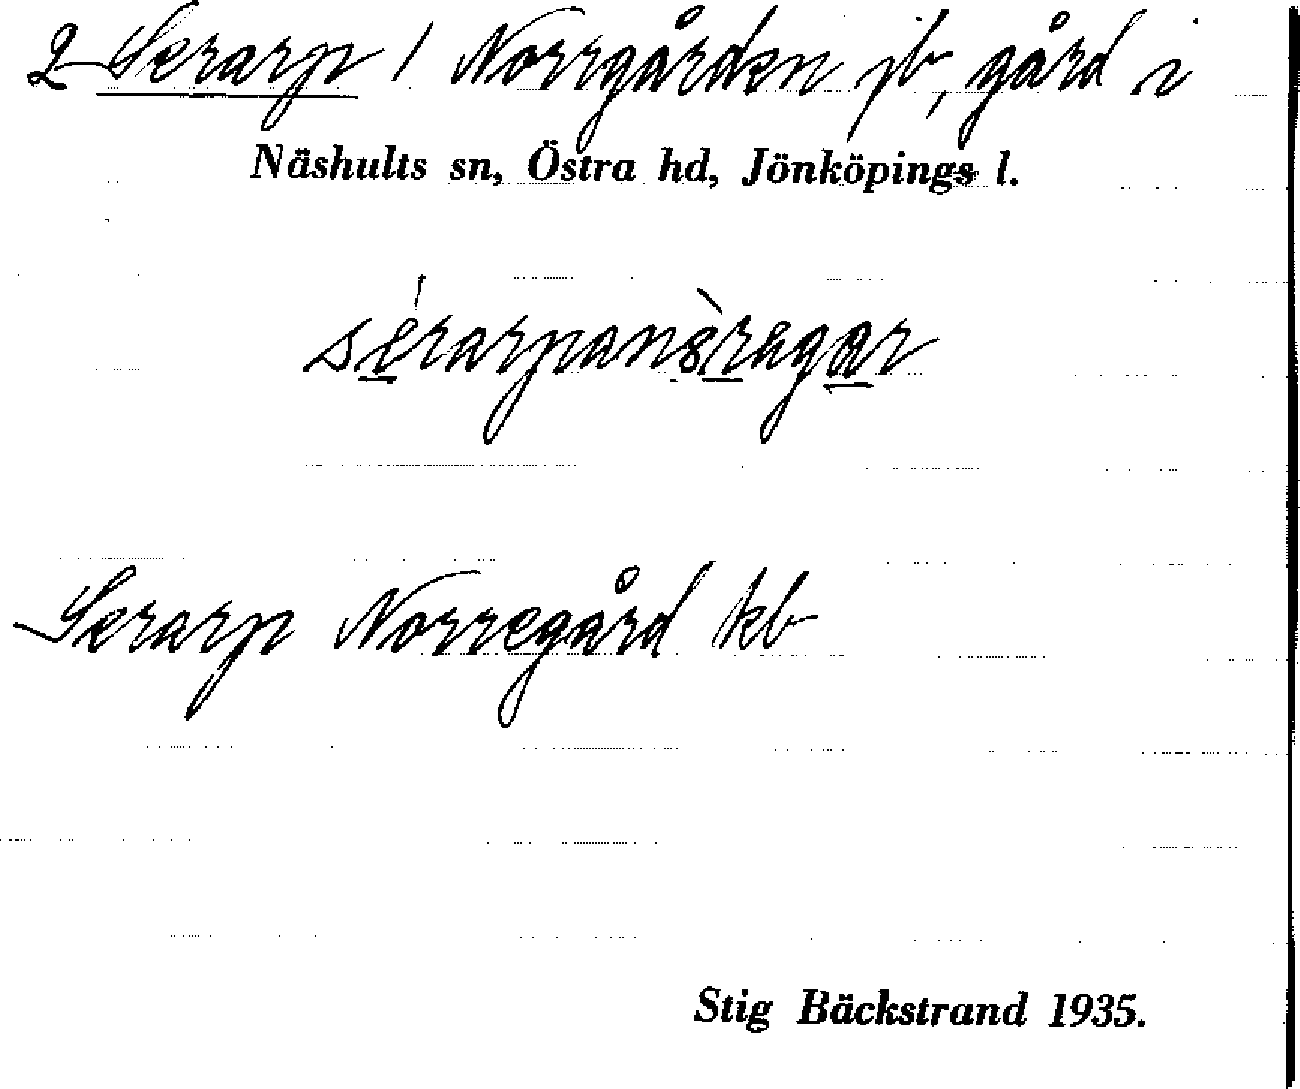 2 Serarp / Norrgården jb, gård i
Näshults sn, Östra hd, Jönköpings l.
Serarp Norregård kb
Stig Bäckstrand 1935.